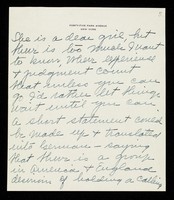 NEW YORK
She is a dear girl, but
there is too much I want
to know when experience
& judgment count
that unless you can
go I'd rather let things
wait until you can.
A short statement could
be made up & translated
into German – saying
that there is a group
in America & England
desirous of holding a calling